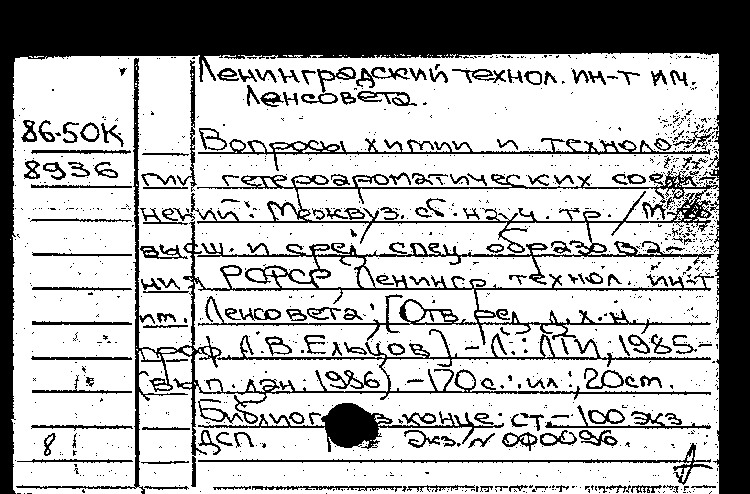 Ленинградский технол. ин-т им.
Ленсовета.
86-50К
Вопросы химии и техноло-
8936
гии гетероароматических соеди-
нений: Межвуз. сб. науч. тр. / М-во
высш. и сред. спец. образова-
ния РСФСР, Ленингр. технол. ин-т
им. Ленсовета; [Отв. ред. д.х.н.,
проф. А.В. Ельцов] - Л.: ЛТИ, 1985.-
(вып. дан. 1986). - 170 с.: ил.; 20 см.
Библиогр. в конце ст. - 100 экз.
ДСП. Экз. №000096.
8